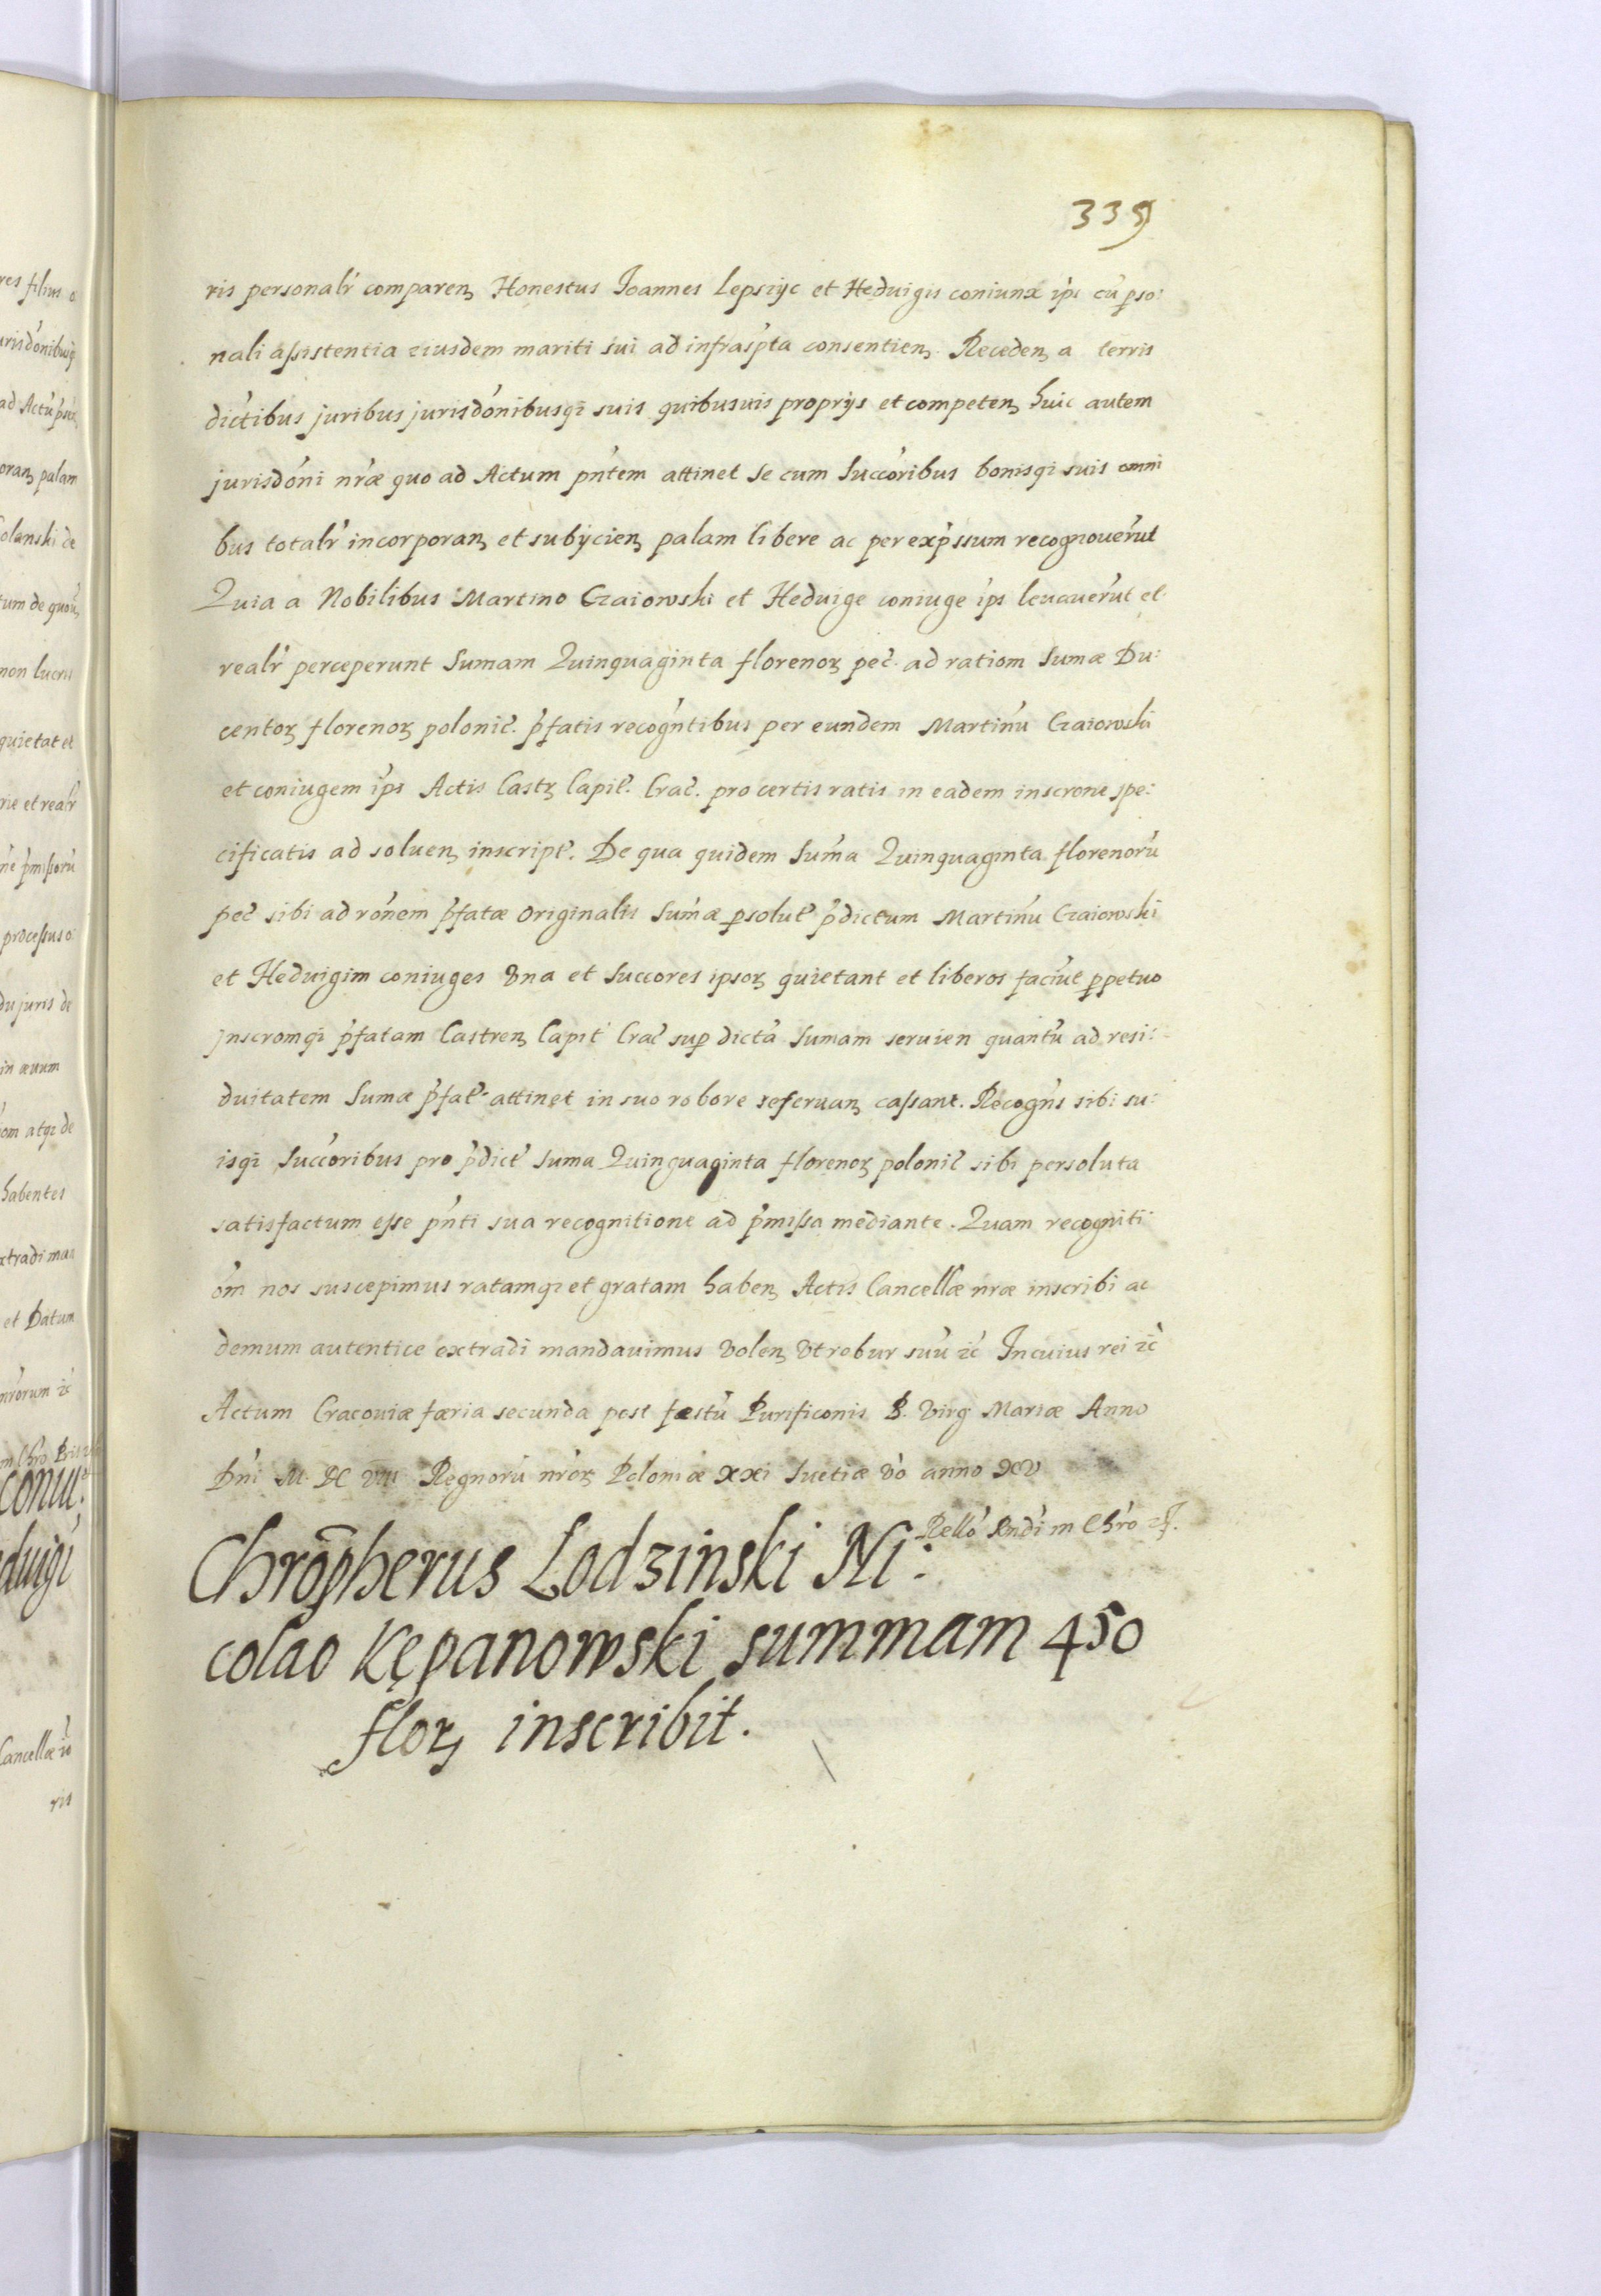 339
ris personalr̃ comparenʒ Honestus Joannes Lepszyc et Heduigis coniunx ip̃s cũ p̱so:
nali assistentia eiusdem mariti sui ad infrasp̃ta consentienʒ. Recedenʒ a terris
dictibus juribus jurisdõnibusqꝫ suis quibusuis proprijs et competenʒ huic autem
jurisdõni nr̃æ quo ad Actum pñtem attinet se cum succõribus bonisqꝫ suis omni
bus totalr̃ incorporanʒ et subijcienʒ palam libere ac per exp̃ssum recognouer̃ut
Quia a Nobilibus Martino Czaiowski et Heduige coniuge ip̃s leuauer̃ut et
realr̃ perceperunt Sumam Quinquaginta florenoꝝ pec̃. ad ratiom Sumæ Du:
centoꝝ florenoꝝ polonic̃. p̃fatis recogñtibus per eundem Martinũ Czaiowski
et coniugem ip̃s Actis Castꝝ Capit̃. Crac̃. pro certis ratis in eadem inscrone spe:
cificatis ad soluenʒ inscript̃. De qua quidem Sum̃a Quinquaginta florenorũ
pec̃ sibi ad rõnem p̃fatæ originalis Sum̃æ p̱solut̃ p̃dictum Martinũ Czaiowski
et Heduigim coniuges vna et succores ipsoꝝ quietant et liberos faciũt p̱petuo
Jnscromqꝫ p̃fatam Castrenʒ Capit̃ Crac̃ sup̱ dictã Sumam seruien quantũ ad resi:
duitatem Sumæ p̃fat̃ attinet in suo robore reseruanʒ cassant. Recogñs sibi su:
isqꝫ succõribus pro p̃dict̃ suma Quinquaginta florenoꝝ polonic̃ sibi persoluta
satisfactum esse pñti sua recognitione ad p̃missa mediante. Quam recogniti:
õm nos suscepimus ratamqꝫ et gratam habenʒ Actis Cancellæ nr̃æ inscribi ac
demum autentice extradi mandauimus volenʒ vt robur suũ ꝛc̃ Jn cuius rei ꝛc̃
Actum Cracouiæ færia secunda post fæstũ Purificonis B. Virg Mariæ Anno
Dñi M. DC VIII Regnorũ nr̃oꝝ Poloniæ XXI Suetiæ võ anno XV
Rellõ Rndi in Chrõ ꝛc̃.
Chrõpherus Lodzinski Ni:
colao Kępanowski summam 450
floꝝ inscribit.